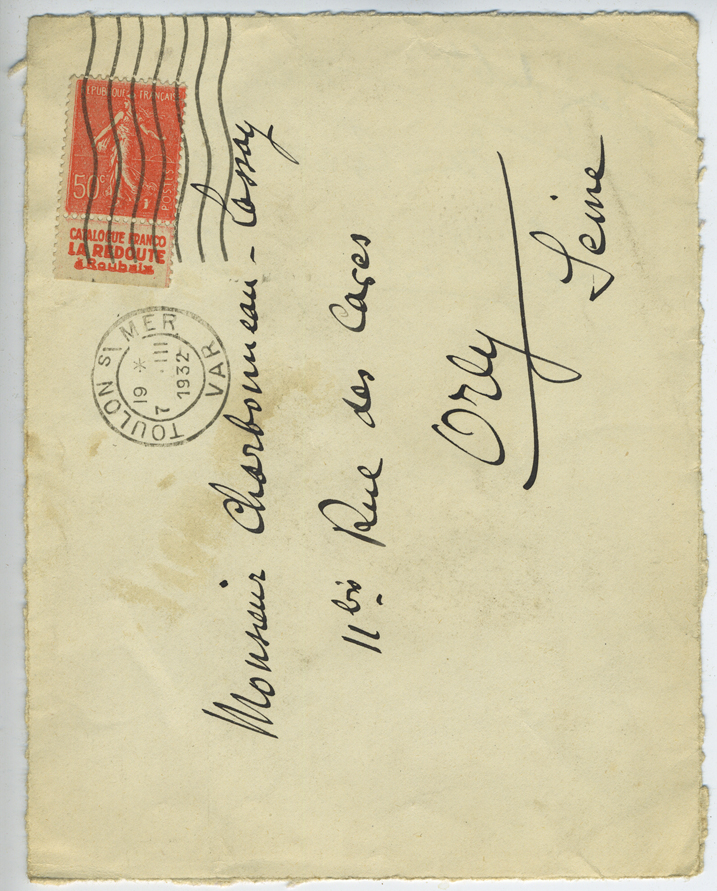 REPUBLIQUE FRANÇAISE
50c
POSTES
CATALOGUE FRANCO
LA REDOUTE
à Roubaix
TOULON S/ MER
19 * 7 III
1932
VAR
Monsieur Charbonneau-Lassay
11 bis Rue des Caçes
Orly
Seine